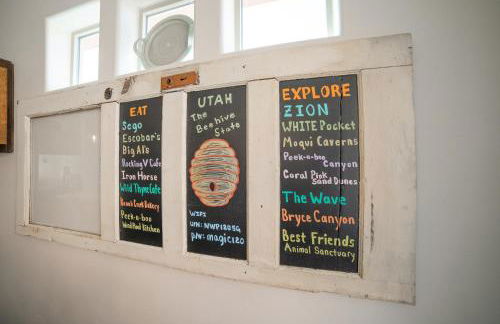 EAT
Sego
Escobar's
Big Al's
Rocking V Cafe
Iron Horse
Wild Thyme Cafe
Peek-a-boo
Wood Fired Kitchen
UTAH
The
Beehive
State
WIFI
p/w: magic120
EXPLORE
ZION
WHITE Pocket
Moqui Caverns
Peek-a-boo
Canyon
Coral Pink
Sand Dunes
The Wave
Bryce Canyon
Best Friends
Animal Sanctuary